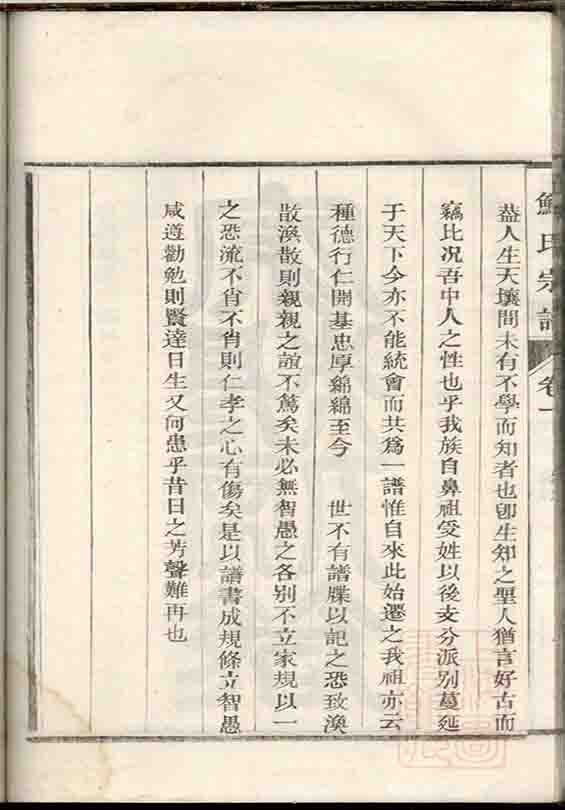 鮑氏宗譜
卷一
葢人生天壤間未有不學而知者也卽生知之聖人猶言好古而
竊比况吾中人之性也乎我族自鼻祖受姓以後支分派別蔓延
于天下今亦不能統會而共爲一譜惟自來此始遷之我祖亦云
種德行仁開基忠厚綿綿至今 世不有譜牒以記之恐致渙
散渙散則親親之誼不篤矣未必無智愚之各別不立家規以一
之恐流不肖不肖則仁孝之心有傷矣是以譜書成規條立智愚
咸遵勸勉則賢達日生又何患乎昔日之芳聲難再也